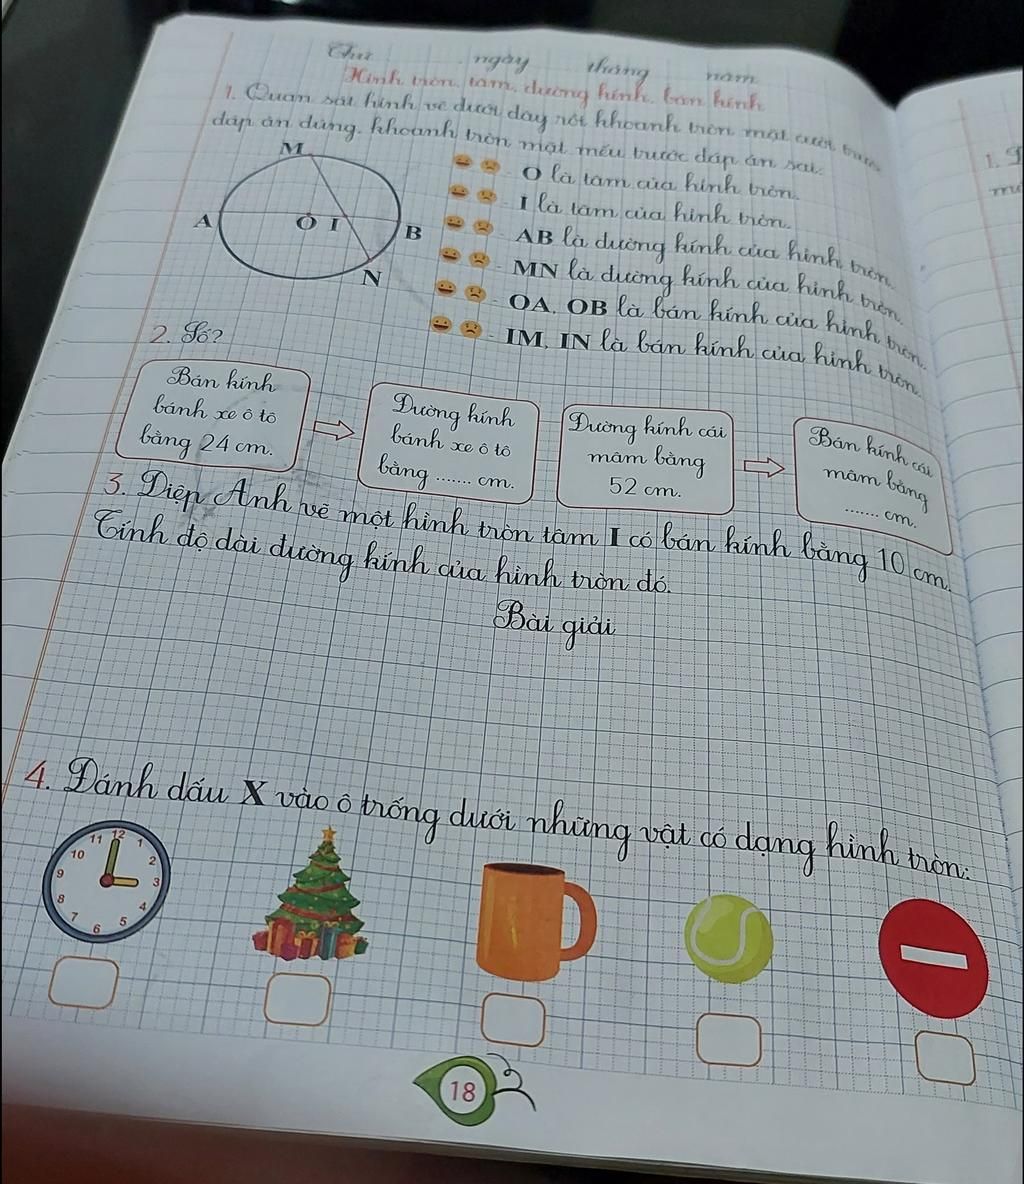 Thứ ngày tháng năm
Hình tròn, tâm, đường kính, bán kính
1. Quan sát hình vẽ dưới đây rồi khoanh tròn mặt cười trước
đáp án đúng, khoanh tròn mặt mếu trước đáp án sai:
M
A O I B
N
- O là tâm của hình tròn.
- I là tâm của hình tròn.
- AB là đường kính của hình tròn.
- MN là đường kính của hình tròn.
- OA, OB là bán kính của hình tròn.
- IM, IN là bán kính của hình tròn.
2. Số?
Bán kính
bánh xe ô tô
bằng 24 cm.
Đường kính
bánh xe ô tô
bằng ....... cm.
Đường kính cái
mâm bằng
52 cm.
Bán kính cái
mâm bằng
....... cm.
3. Diệp Anh vẽ một hình tròn tâm I có bán kính bằng 10 cm.
Tính độ dài đường kính của hình tròn đó.
Bài giải
4. Đánh dấu X vào ô trống dưới những vật có dạng hình tròn:
12
11 1
10 2
9 3
8 4
7 5
6
18
1.